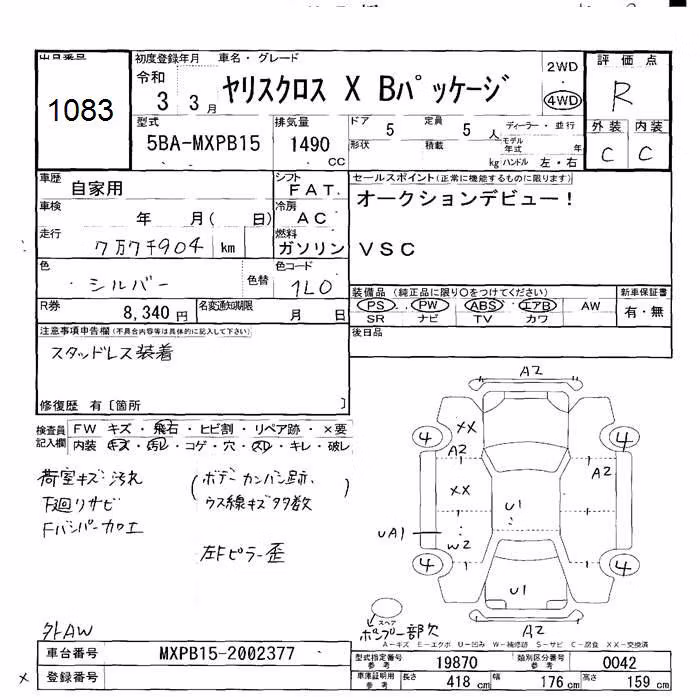 出品番号
1083
初度登録年月 車名・グレード
令和
3 3月
ヤリスクロス X Bパッケージ
2WD
4WD
評価点
R
外装 内装
C C
型式
5BA-MXPB15
排気量
1490
CC
ドア 5 定員 5 人
形状 積載 kg
ディーラー・並行
モデル年式 年
ハンドル 左・右
車歴
自家用
シフト
FAT
車検
年 月( 日)
冷房
AC
走行
7万7千904 km
燃料
ガソリン
色
シルバー
色替
色コード
1L0
R券
8,340円
名変通知期限
月 日
セールスポイント(正常に機能するものに限ります)
オークションデビュー!
VSC
装備品 (純正品に限り〇をつけてください)
PS PW ABS エアB AW
SR ナビ TV カワ
新車保証書
有・無
後日品
注意事項申告欄(不具合内容等は具体的に記入して下さい)
スタッドレス装着
修復歴 有[箇所 ]
検査員記入欄
FW キズ・飛石・ヒビ割・リペア跡・×要
内装 キズ・汚レ・コゲ・穴・スレ・キレ・破レ
荷室キズ汚れ
下廻りサビ
Fバンパー加工
(ボデーカンバン跡、
ウス線キズタ多数)
左Fピラー歪
外AW
A2
4 XX 4
A2 A2
XX U1
UA1
W2
4 4
U1
スペア
ポンプ一部欠
A2
A-キズ E-エクボ U-凹み W-補修跡 S-サビ C-腐食 XX-交換済
車台番号 MXPB15-2002377
登録番号
X
型式指定番号 参考 19870
類別区分番号 参考 0042
車庫証明用 参考
長さ 418 cm
幅 176 cm
高さ 159 cm